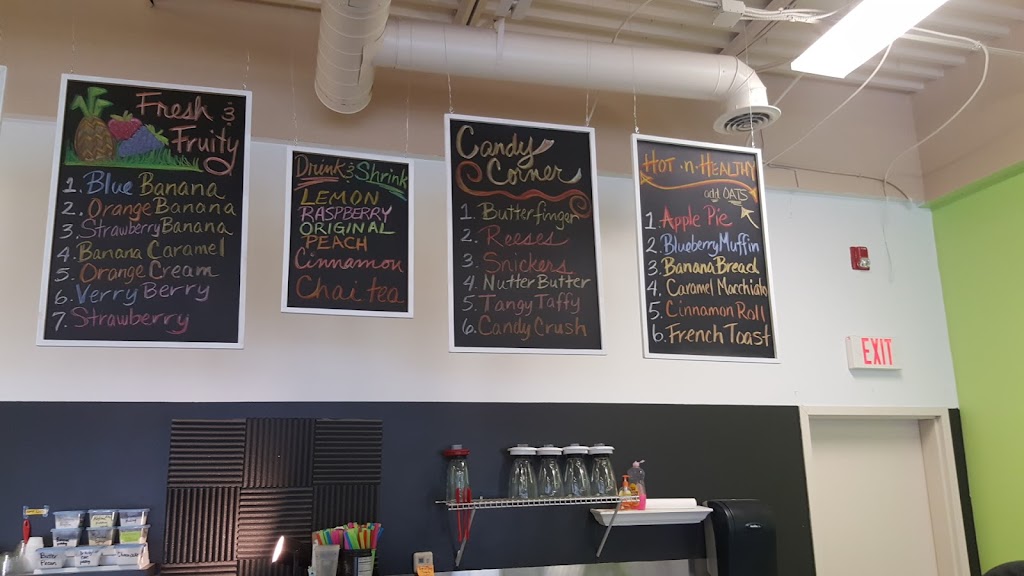 Fresh &
Fruity
1. Blue Banana
2. Orange Banana
3. Strawberry Banana
4. Banana Caramel
5. Orange Cream
6. Verry Berry
7. Strawberry
Drink & Shrink
LEMON
RASPBERRY
ORIGINAL
PEACH
Cinnamon
Chai tea
Candy
Corner
1. Butterfinger
2. Reeses
3. Snickers
4. Nutter Butter
5. Tangy Taffy
6. Candy Crush
HOT-n-HEALTHY
add OATS
1. Apple Pie
2. Blueberry Muffin
3. Banana Bread
4. Caramel Macchiato
5. Cinnamon Roll
6. French Toast
EXIT
Butter
Pecan